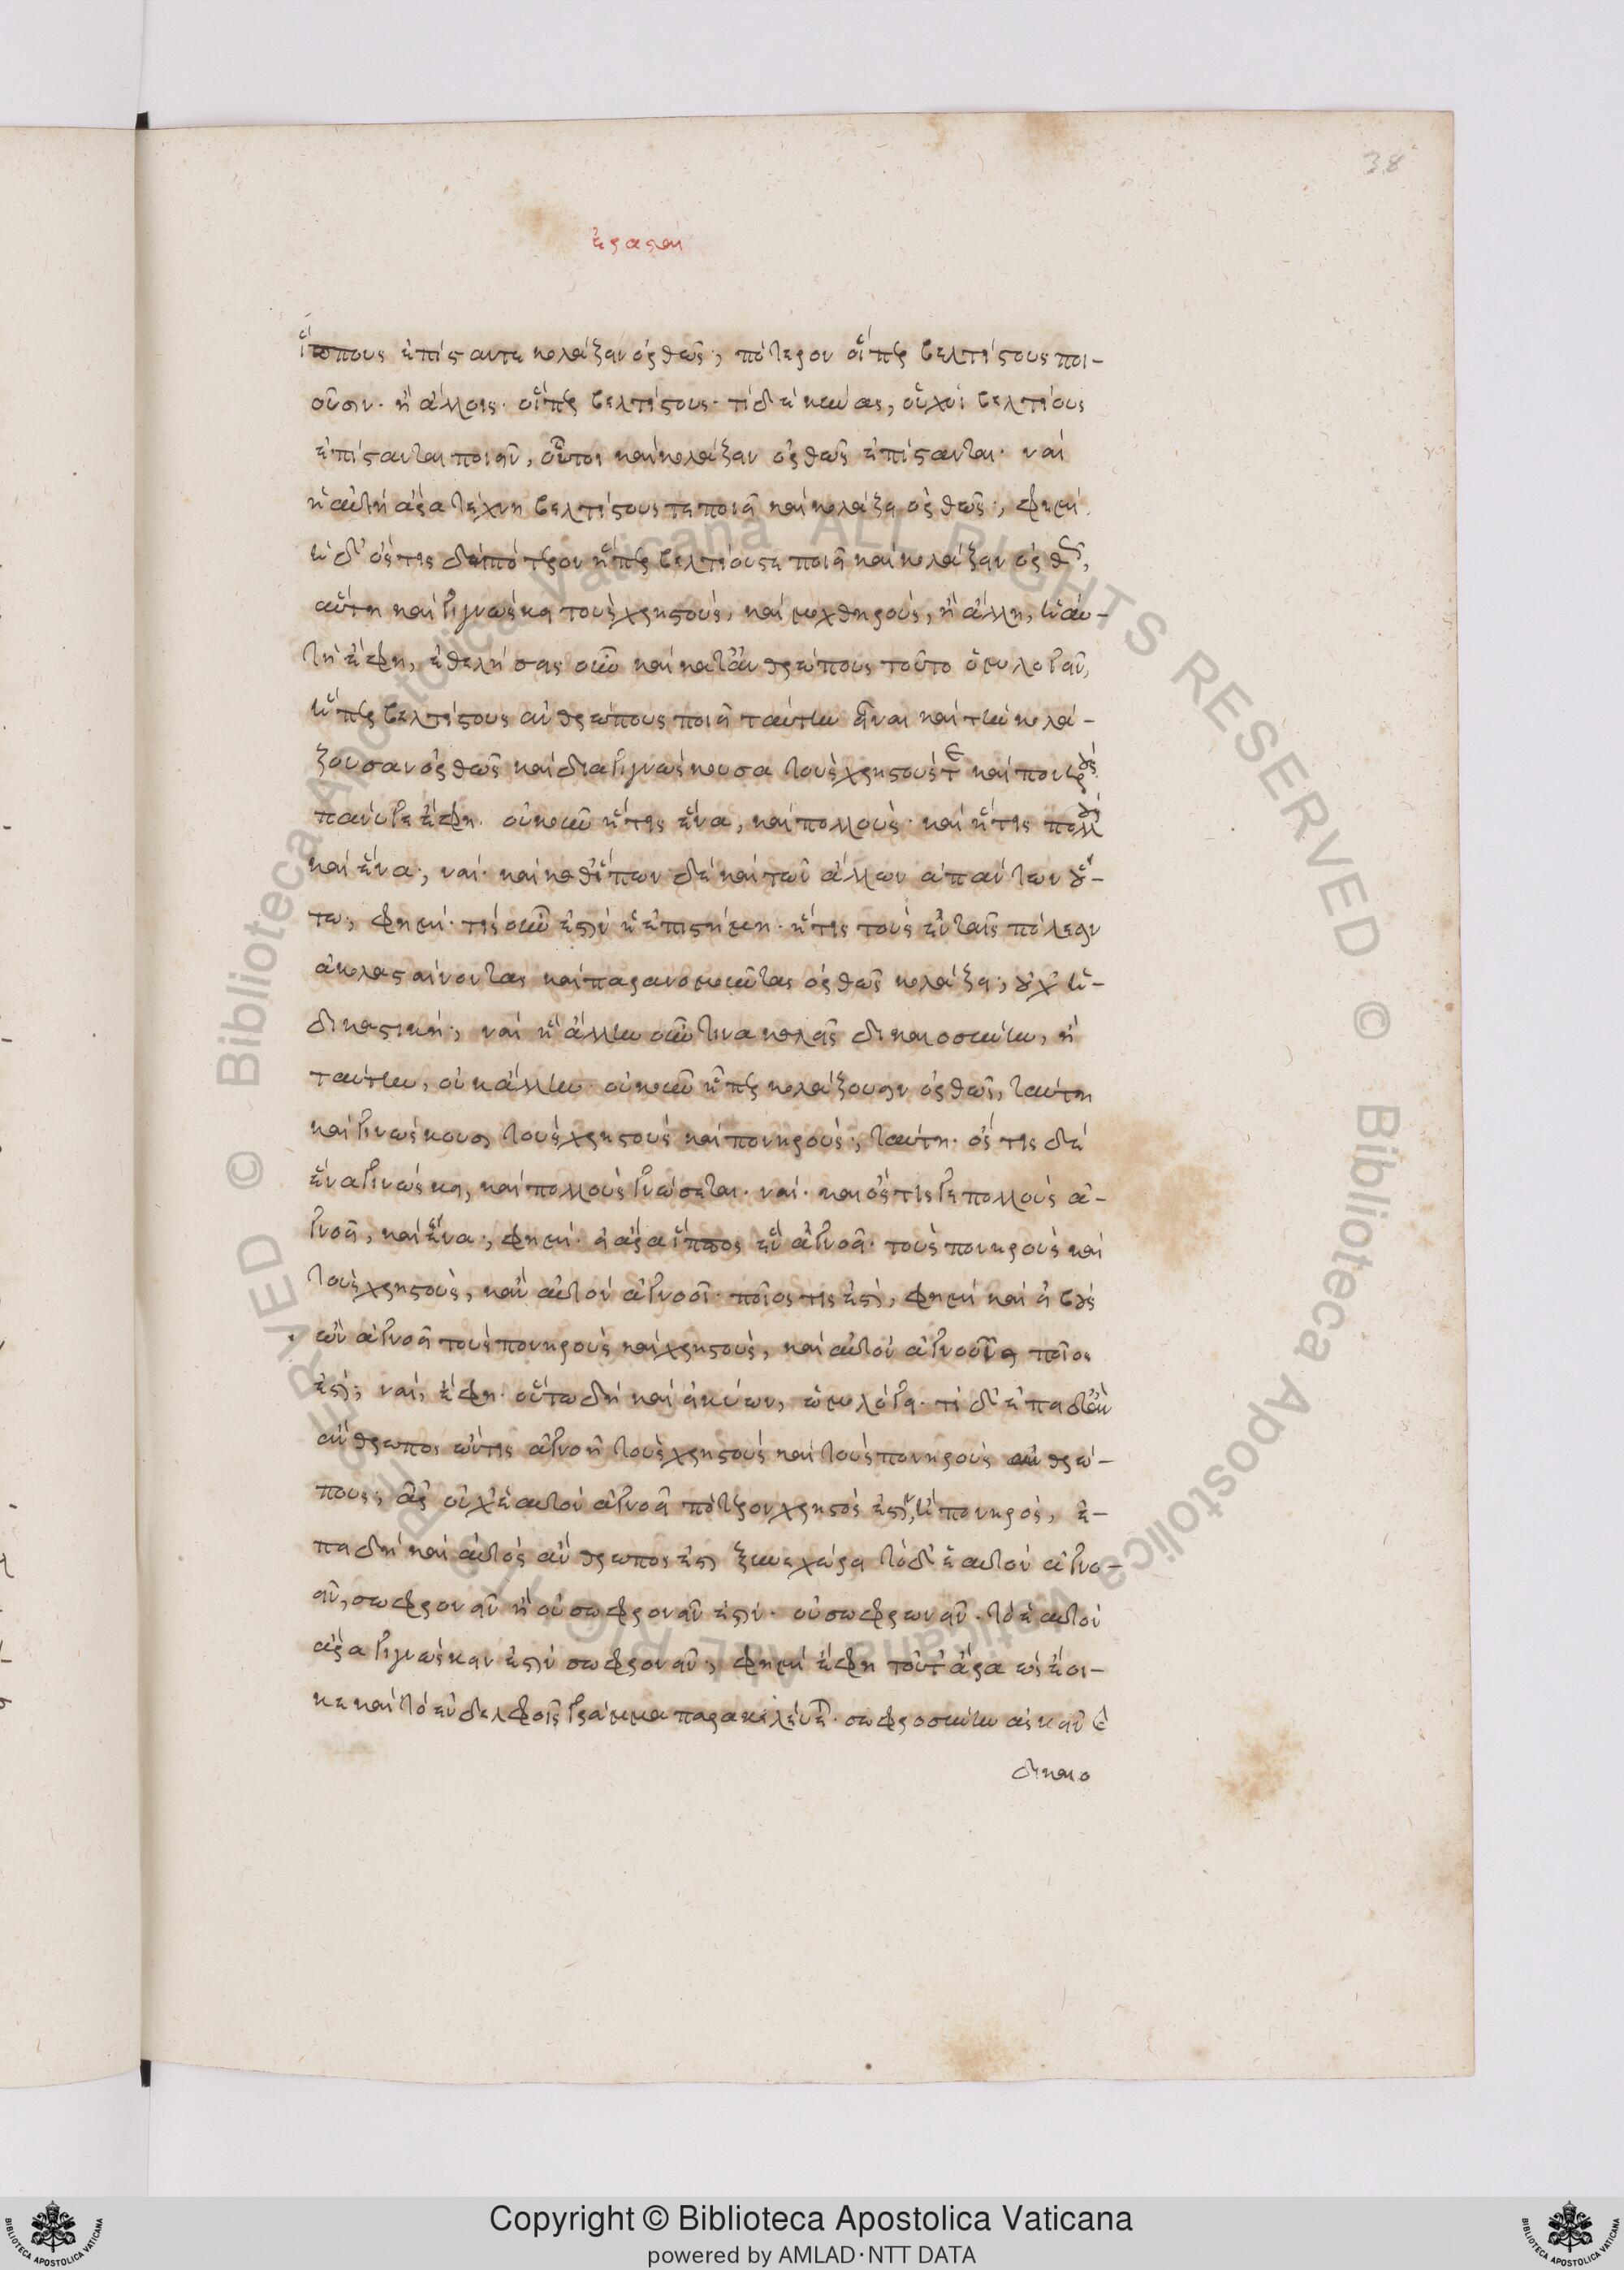 38
ἐρασταί
ἵππους ἐπίστανται κολάζειν ὀρθῶς; πότερον οἵπερ βελτίστους ποι-
οῦσιν· ἢ ἄλλοις· οἵπερ βελτίστους· τί δὲ κύνας, οὐχοὶ βελτίους
ἐπίστανται ποιεῖν, οὗτοι καὶ κολάζειν ὀρθῶς ἐπίστανται· ναί
ἡ αὐτὴ ἄρα τέχνη βελτίστους τε ποιεῖ καὶ κολάζει ὀρθῶς; φημί.
ἦ δ' ὅς τις δὲ πότερον ἥπερ βελτίους τε ποιεῖ καὶ κολάζειν ὀρθῶς,
αὕτη καὶ γιγνώσκει τοὺς χρηστοὺς, καὶ μοχθηροὺς, ἢ ἄλλη, ἡ αὐ-
τὴ ἔφη, ἐθελήσεις οὖν καὶ κατ' ἀνθρώπους τοῦτο ὁμολογεῖν,
ἥπερ βελτίστους ἀνθρώπους ποιεῖ ταύτην εἶναι καὶ τὴν κολά-
ζουσαν ὀρθῶς καὶ διαγιγνώσκουσα τοὺς χρηστούς τε καὶ πονηρούς
πάνυ γε ἔφη. οὐκοῦν ἥτις ἕνα, καὶ πολλούς· καὶ ἥτις πολλούς
καὶ ἕνα; ναί· καὶ καθ' ἵππων δὲ καὶ τῶν ἄλλων ἁπάντων οὕ-
τω; φημί· τίς οὖν ἐστὶν ἡ ἐπιστήμη· ἥτις τοὺς ἐν ταῖς πόλεσιν
ἀκολασταίνοντας καὶ παρανομοῦντας ὀρθῶς κολάζει; οὐχ ἡ-
δικαστική; ναί ἢ ἄλλην οὖν τινα καλεῖς δικαιοσύνην, ἢ
ταύτην, οὐκ ἄλλην· οὐκοῦν ᾗπερ κολάζουσιν ὀρθῶς, ταύτη
καὶ γινώσκουσι τοὺς χρηστοὺς καὶ πονηρούς; ταύτη· ὅς τις δὲ
ἕνα γινώσκει, καὶ πολλοὺς γνώσεται· ναί· καὶ ὅς τίς γε πολλοὺς ἀ-
γνοεῖ, καὶ ἕνα; φημί· εἰ ἄρα ἵππος ὢν ἀγνοεῖ· τοὺς πονηροὺς καὶ
τοὺς χρηστοὺς, κἂν αὐτὸν ἀγνοοῖ· ποῖός τις ἐστὶ, φημὶ καὶ εἰ βοῦς
ὢν ἀγνοεῖ τοὺς πονηροὺς καὶ χρηστοὺς, καὶ αὐτὸν ἀγνοοῖ ποῖος
ἐστί; ναί, ἔφη· οὕτω δὴ καὶ εἰ κύων, ὡμολόγει· τί δ' ἐπειδὰν
ἄνθρωπος ὤν τις ἀγνοῇ τοὺς χρηστοὺς καὶ τοὺς πονηροὺς ἀνθρώ-
πους; ἆρ' οὐχ ἑαυτὸν ἀγνοεῖ πότερον χρηστός ἐστιν, ἢ πονηρός, ἐ-
πειδὴ καὶ αὐτὸς ἄνθρωπος ἐστὶ ξυνεχώρει τὸ δ' ἑαυτὸν ἀγνο-
εῖν, σωφρονεῖν ἢ οὐ σωφρονεῖν ἐστίν· οὐ σωφρωνεῖν· τὸ ἑαυτὸν
ἄρα γιγνώσκειν ἐστὶν σωφρονεῖν; φημί ἔφη τοῦτ' ἄρα ὡς ἔοι-
κε καὶ τὸ ἐν δελφοῖς γράμμα παρακελεύεται· σωφροσύνην ἀσκεῖν καὶ
δικαιο
Copyright © Biblioteca Apostolica Vaticana
powered by AMLAD·NTT DATA